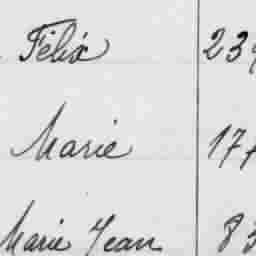 Félix 23
Marie 17
Marie Jean 83